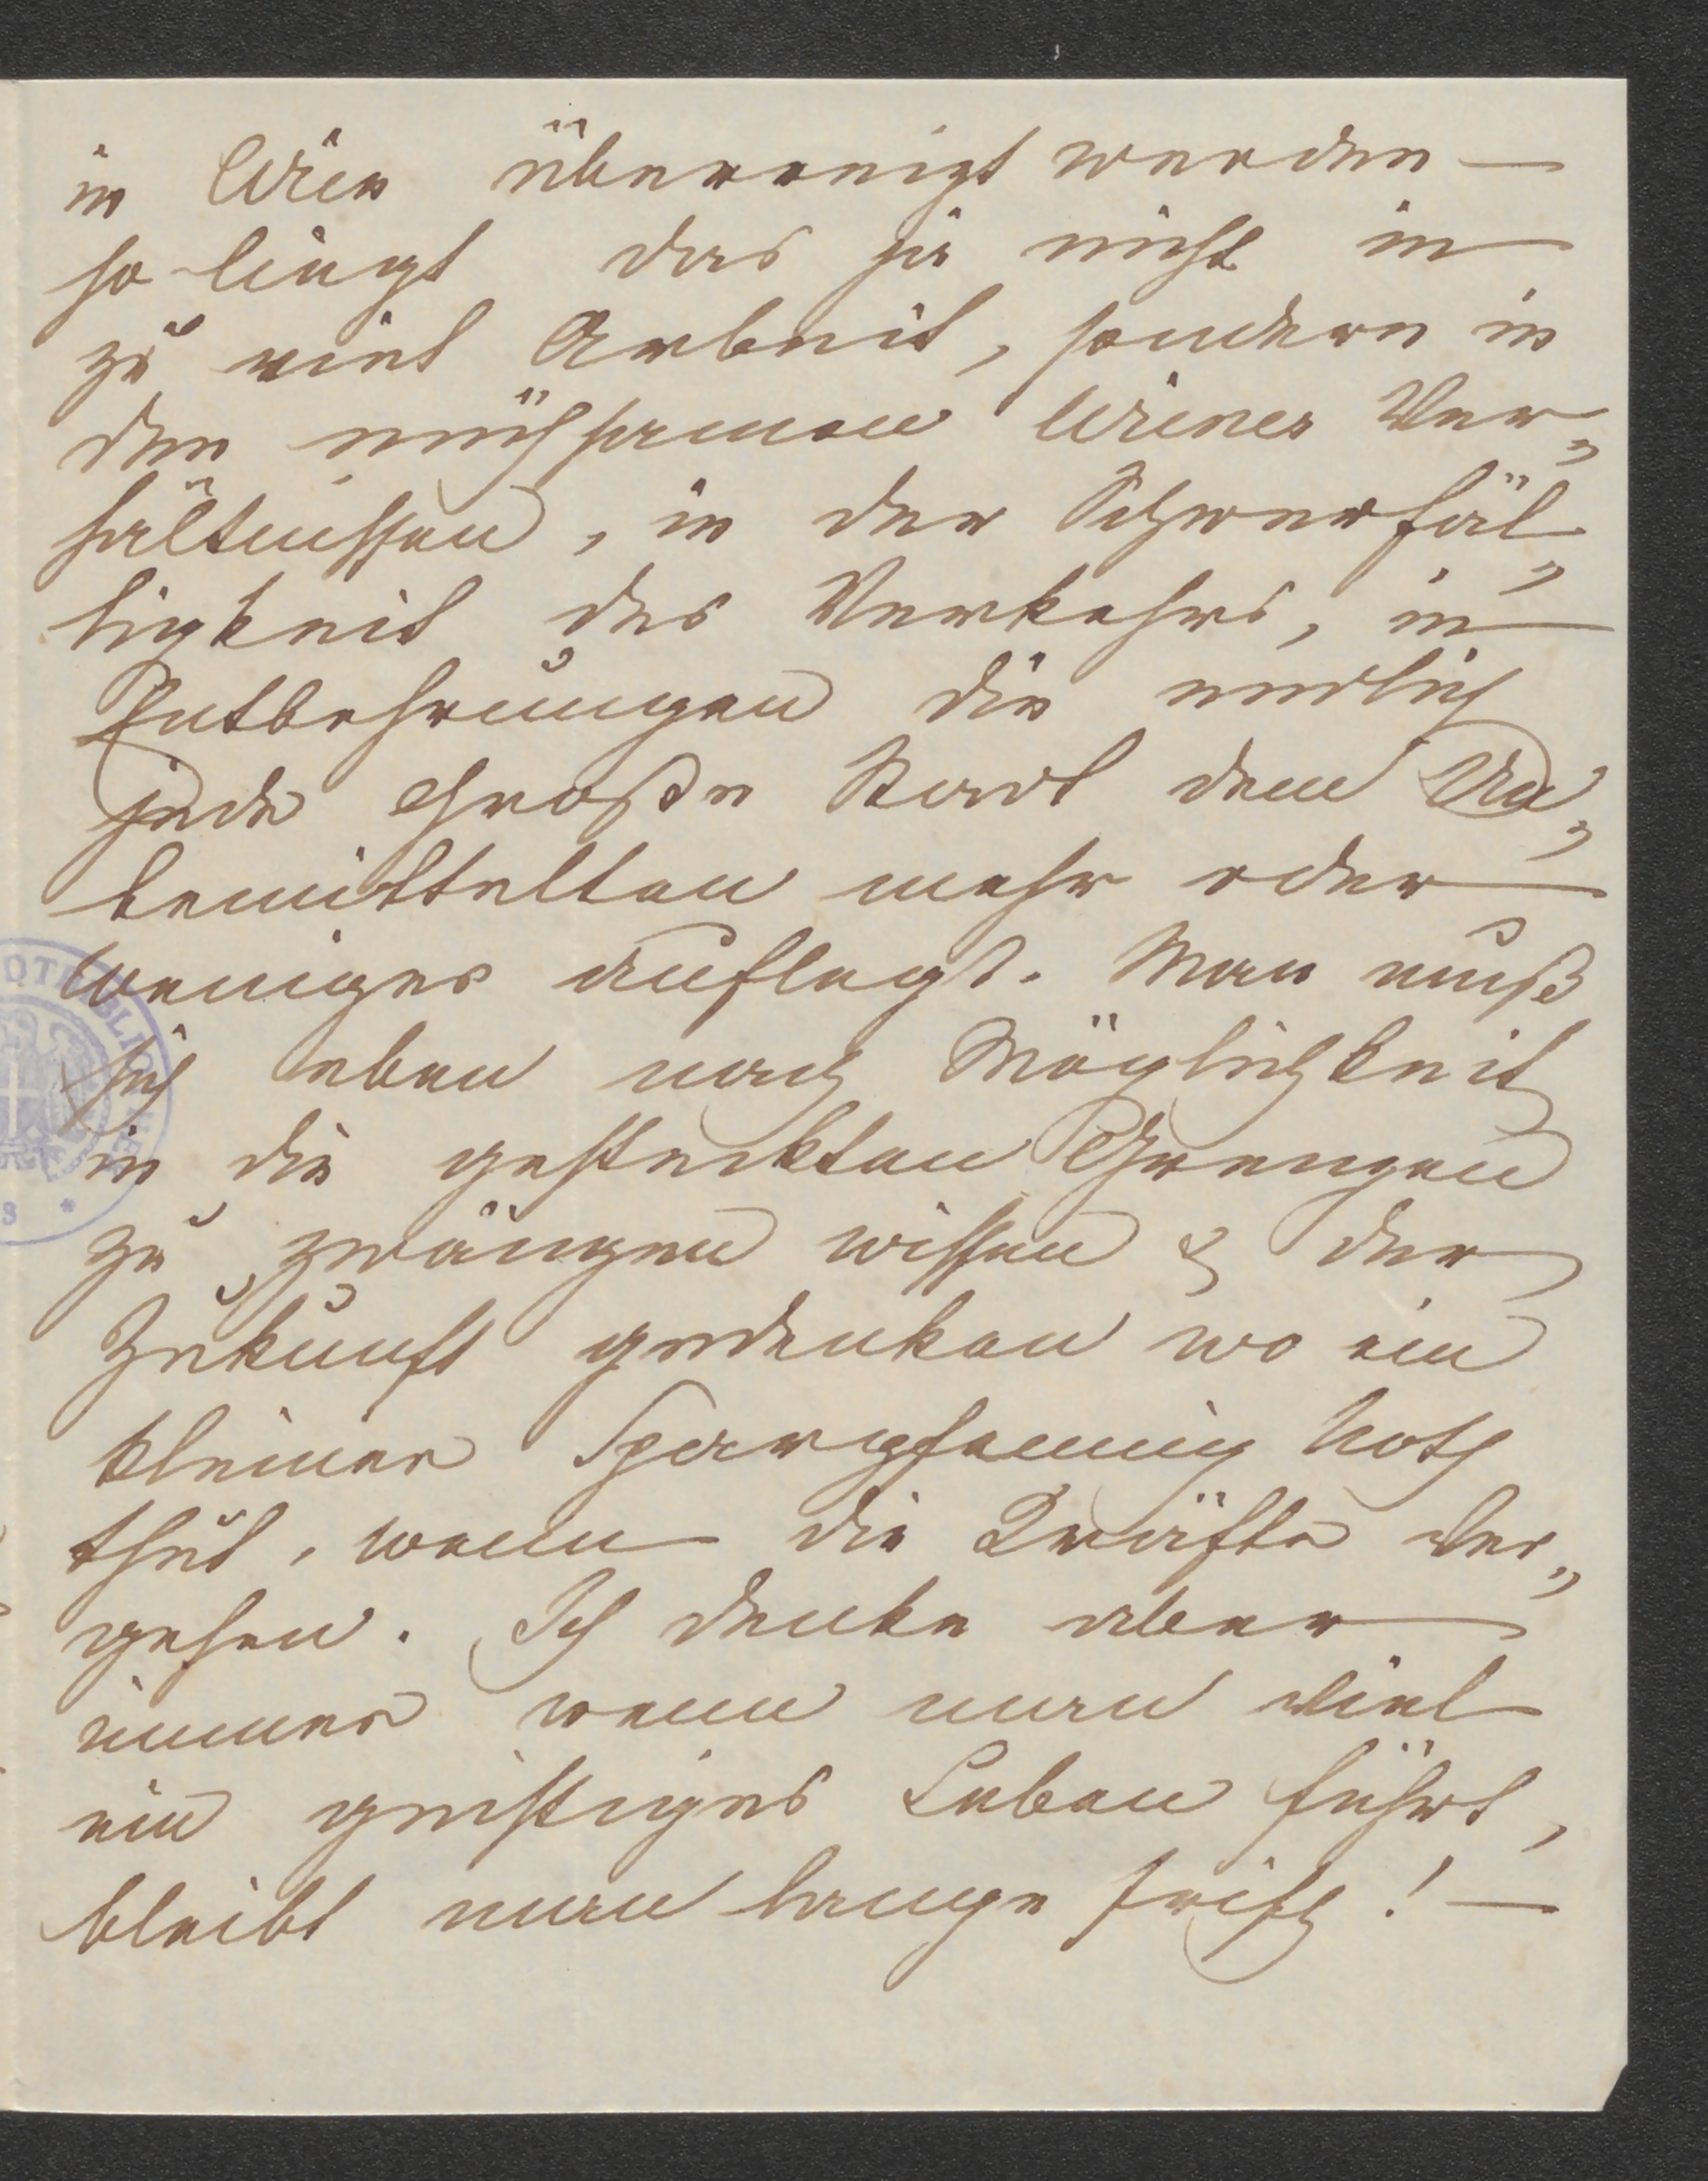 in Wien überreizt werden —
so liegt das ja nicht in
zu viel Arbeit, sondern in
den mühsamen Wiener Ver„
hältnissen, in der Schwerfäl„
ligkeit des Verkehrs, in
Entbehrungen die endlich
jede Große Stadt dem Un„
bemittelten mehr oder
weniger auflegt. Man muß
sich eben nach Möglichkeit
in die gesteckten Grenzen
zu zwängen wissen & der
Zukunft gedenken wo ein
kleiner Sparpfennig Noth
thut, wenn die Kräfte ver„
gehen. Ich denke aber
immer wenn man viel
ein geistiges Leben führt,
bleibt man lange frisch! —